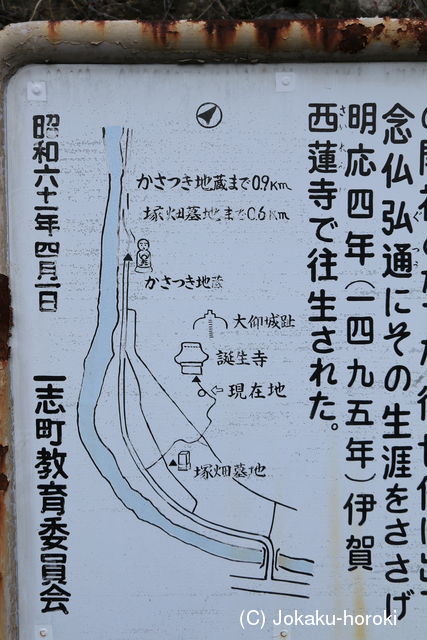 念仏弘通にその生涯をささげ
明応四年(一四九五年)伊賀
西蓮寺で往生された。
さいれんじ
かさつき地蔵まで0.9Km
塚畑墓地まで0.6Km
かさつき地蔵
大仰城趾
誕生寺
⇦現在地
塚畑墓地
昭和六十一年四月一日
一志町教育委員会
(C) Jokaku-horoki